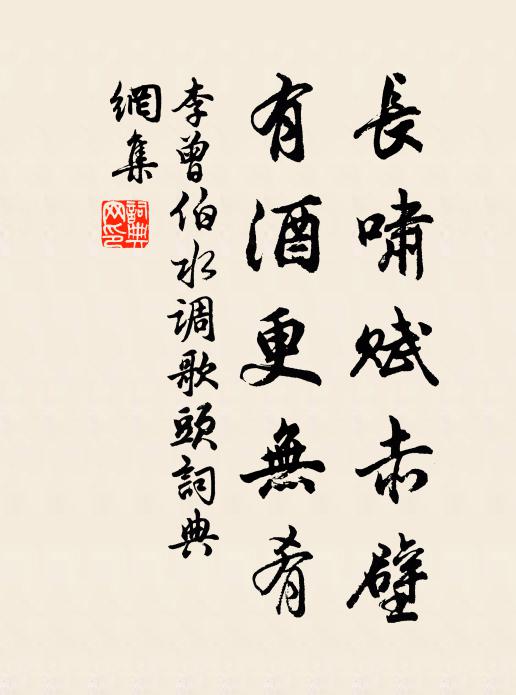 長嘯賦赤壁
有酒更無肴
李曾伯水调歌頭詞典
網集
詞典网印